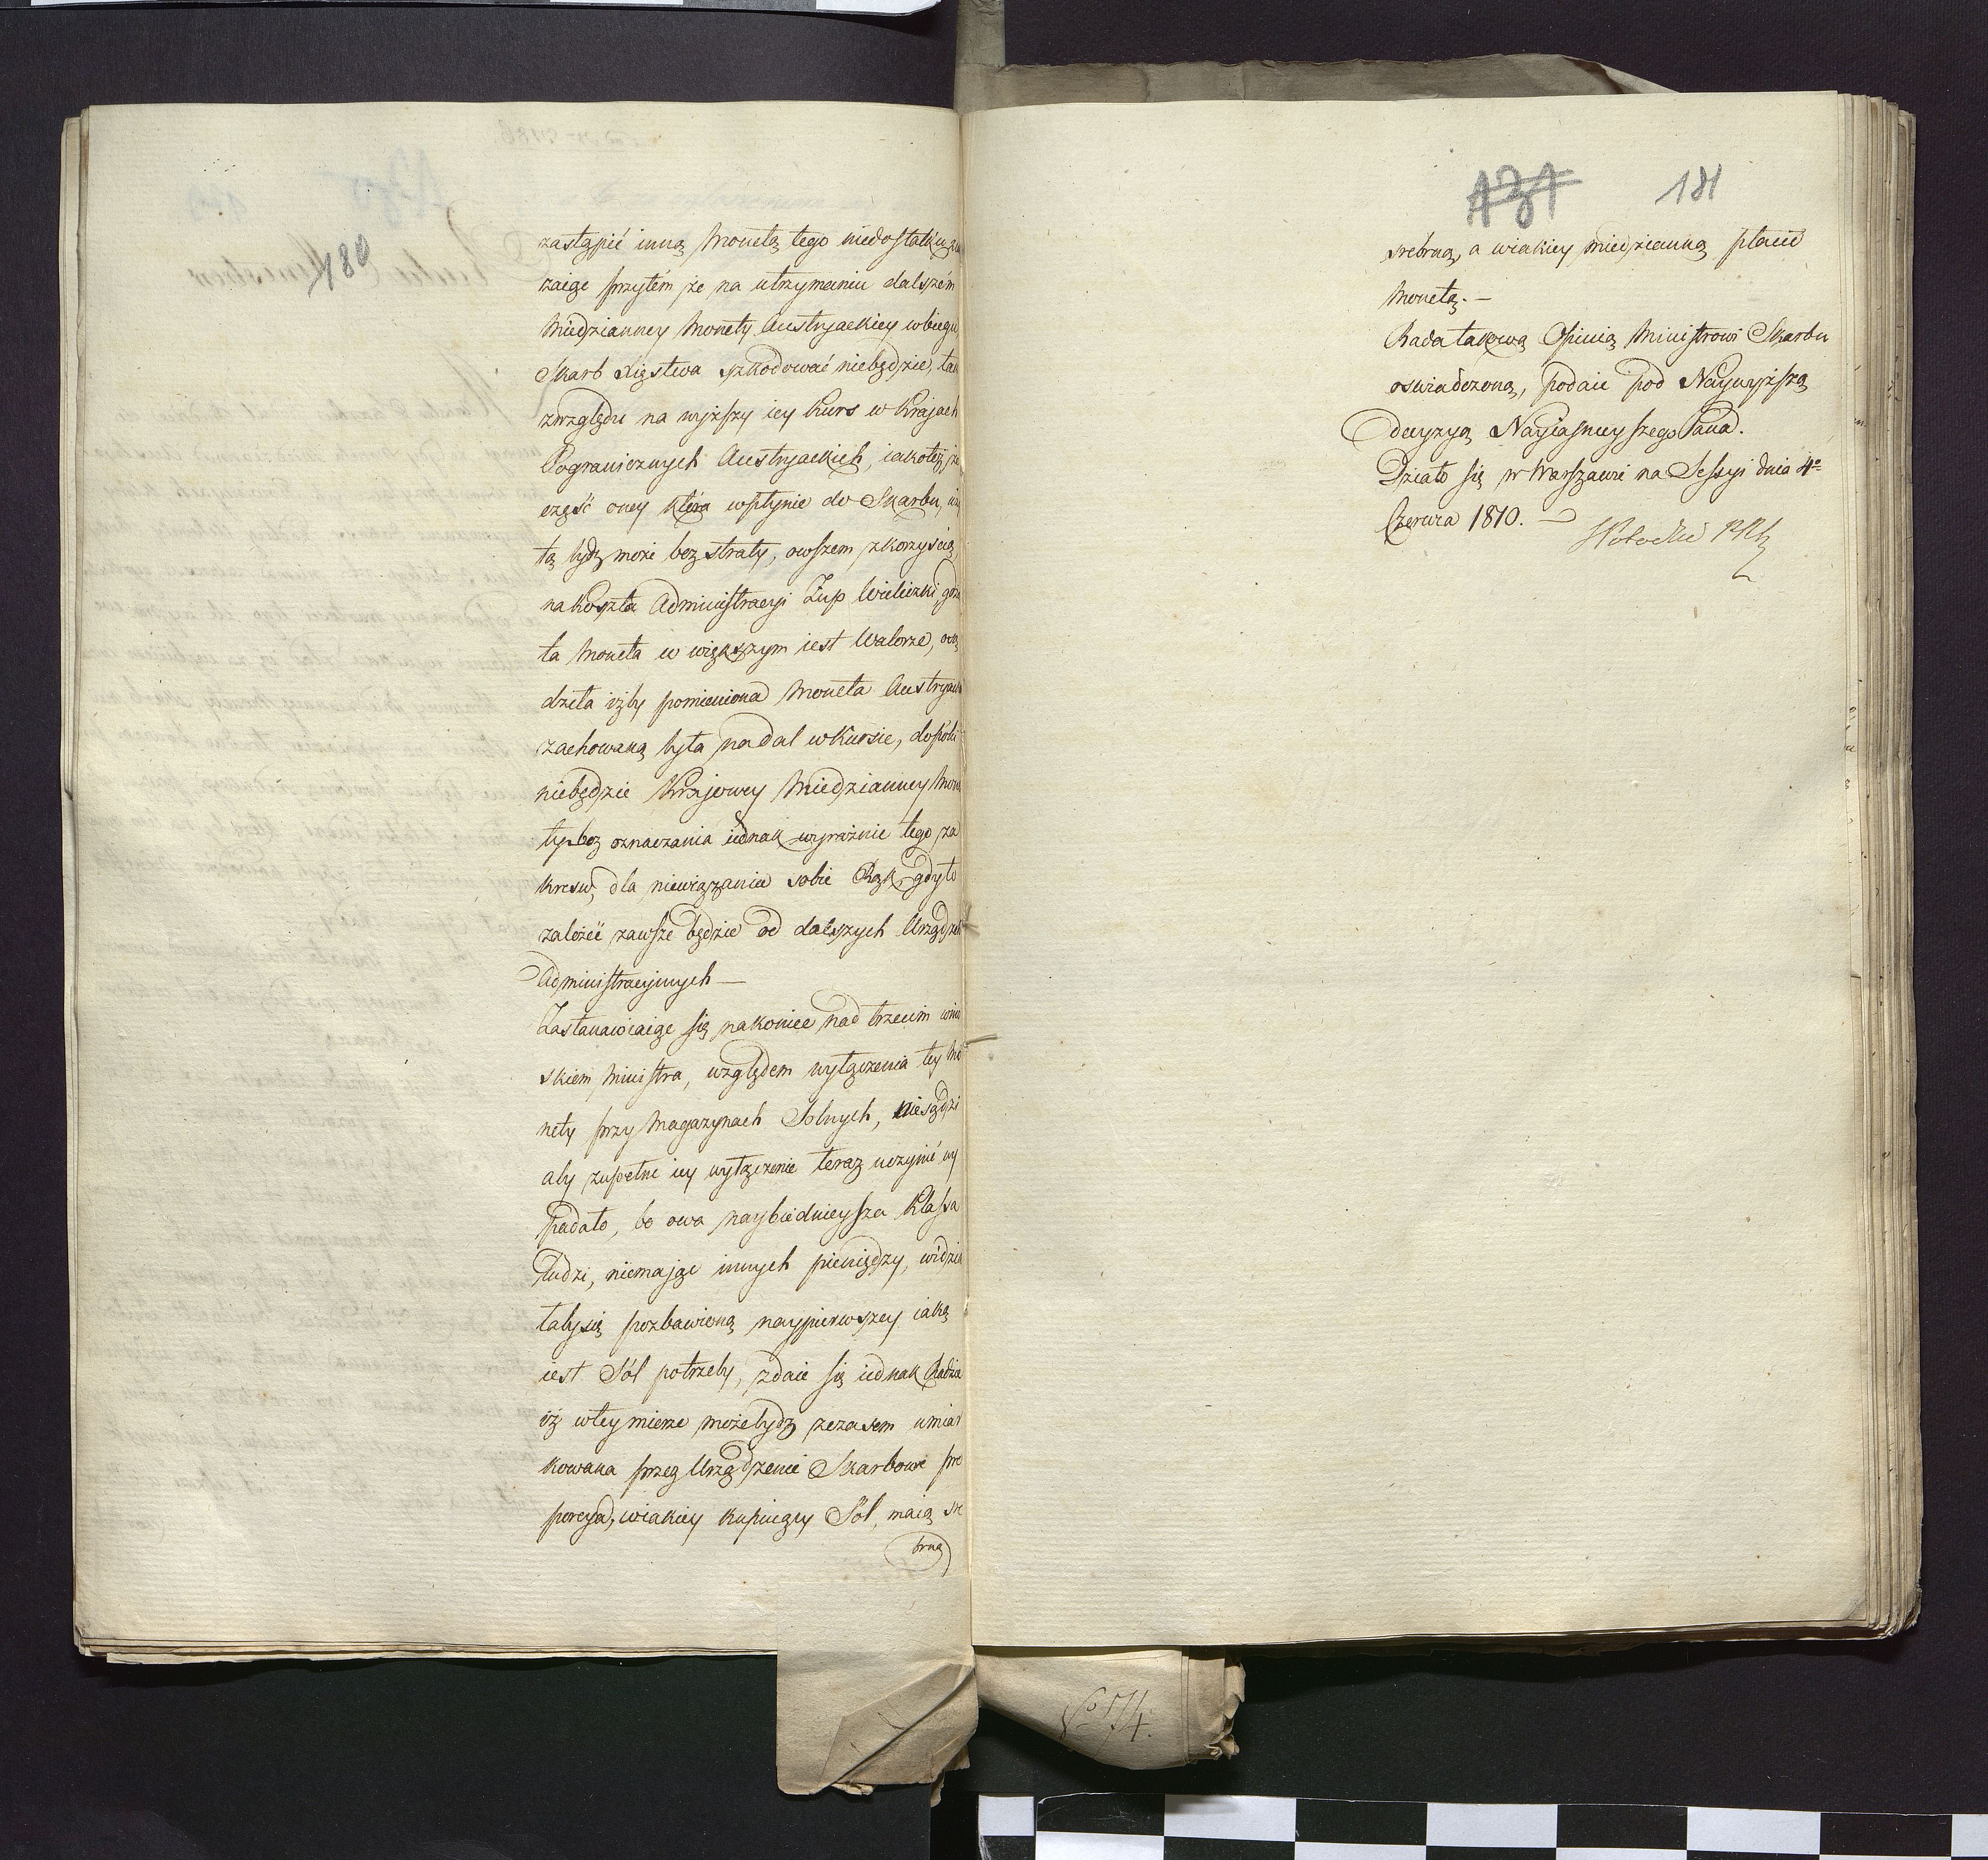 180
zastąpić inną Monetą tego niedostatku,
zaiąc przytém że na utrzymaniu dalszém
Miedzianney Monety Austryackiey w biegu
Skarb Xięstwa szkodować niebędzie, tak
zwzględu na wyższy iey Kurs w Krajach
Pogranicznych Austryackich, iakoteż że
część oney która wpłynie do Skarbu,
tą bydź może bez straty, owszem z korzyścią
na koszta Administracyi Żup Wieliczki, gdzie
ta Moneta w większym iest Walorze,
dziła iżby pomieniona Moneta Austryack
zachowaną była nadal w Kursie, dopóki
niebędzie Krajowey Miedzianney Mone
ty, bez oznaczania iednak wyraźnie tego za
kresu, dla niewiązania sobie Rąk, gdy to
zależeć zawsze będzie od dalszych Urządzeń
Administracyinych —
Zastanawiaiąc się nakoniec nad trzecim wnio
skiem Ministra, względem wyłączenia tey Mo
nety przy Magazynach Solnych, niesądzi
aby zupełne iey wyłączenie teraz uczynić wy
padało, bo owa naybiednieysza Klassa
Ludzi, niemając innych pieniędzy, widzia
łaby się pozbawioną naypierwszey iaką
iest Sól potrzeby, zdaie się iednak Radzie
iż w tey mierze może bydź z czasem umiar
kowana przez Urządzenie Skarbowe pro
porcya, w iakiey kupuiący Sól, maią sre
brną
181
srebrną, a w iakiey miedzianną płacić
Monetą. —
Rada takową Opinią Ministrowi Skarbu
oswiadczoną, podaie pod Naywyższą
Decyzyą Nayiasnieyszego Pana.
Działo się w Warszawie na Sessyi dnia 4º
Czerwca 1810. —
S Potocki PRM
No 174.